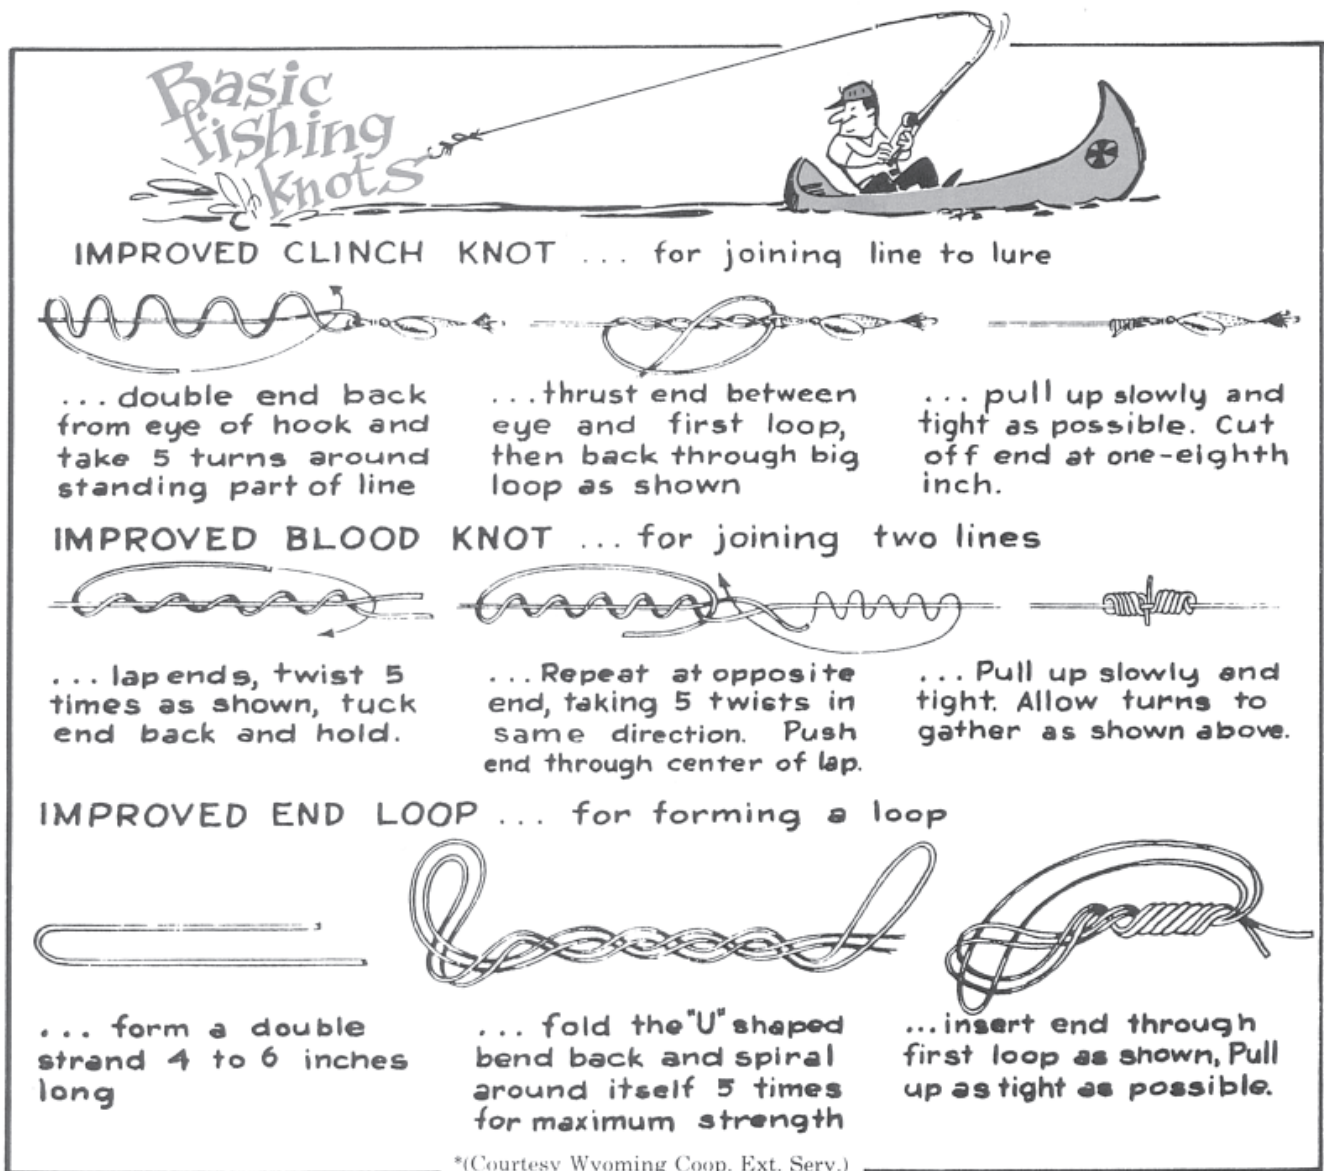 Basic
fishing
knots
IMPROVED CLINCH KNOT ... for joining line to lure
... double end back
from eye of hook and
take 5 turns around
standing part of line
... thrust end between
eye and first loop,
then back through big
loop as shown
... pull up slowly and
tight as possible. Cut
off end at one-eighth
inch.
IMPROVED BLOOD KNOT ... for joining two lines
... lap ends, twist 5
times as shown, tuck
end back and hold.
... Repeat at opposite
end, taking 5 twists in
same direction. Push
end through center of lap.
... Pull up slowly and
tight. Allow turns to
gather as shown above.
IMPROVED END LOOP ... for forming a loop
... form a double
strand 4 to 6 inches
long
... fold the "U" shaped
bend back and spiral
around itself 5 times
for maximum strength
...insert end through
first loop as shown, Pull
up as tight as possible.
*(Courtesy Wyoming Coop. Ext. Serv.)